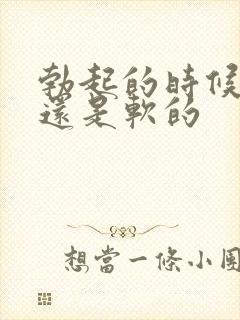 勃起的時候
還是軟的
想當一條小團